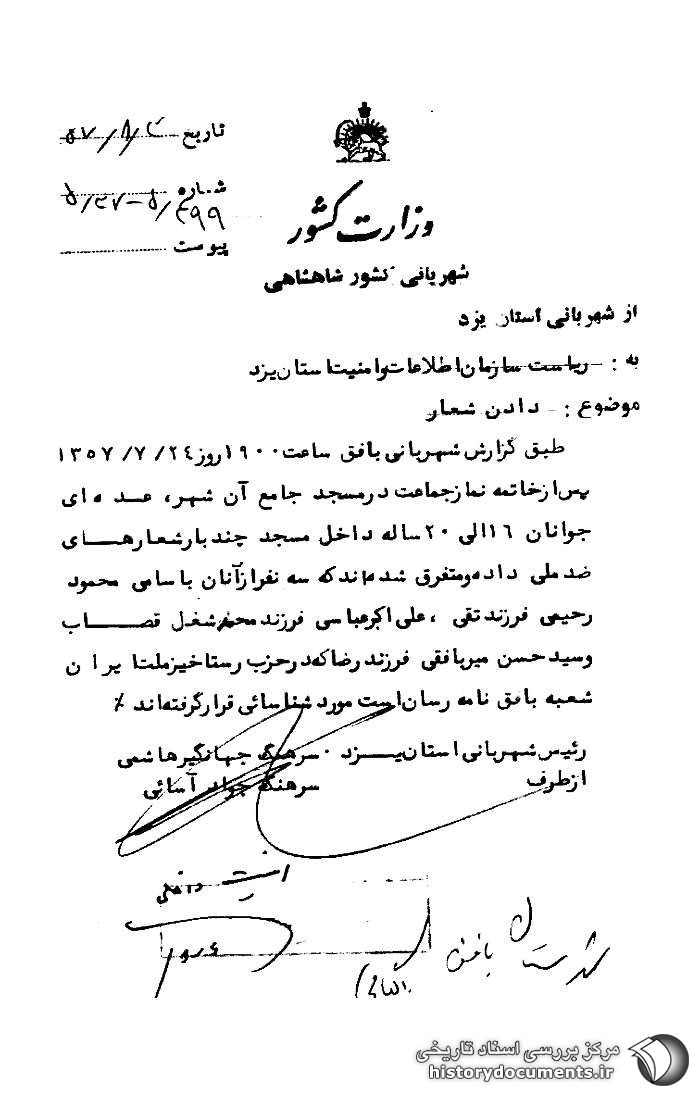 تاریخ
۵۷/۸/۲
شماره
پیوست
وزارت کشور
شهربانی کشور شاهنشاهی
از شهربانی استان یزد
به : ریاست سازمان اطلاعات و امنیت استان یزد
موضوع : دادن شعار
طبق گزارش شهربانی بافق ساعت ۱۹۰۰ روز ۲۴/ ۷/ ۱۳۵۷
پس از خاتمه نماز جماعت در مسجد جامع آن شهر، عده ای
جوانان ۱۶ الی ۲۰ ساله داخل مسجد چند بار شعارهای
ضد ملی داده و متفرق شده اند که سه نفر از آنان باسامی محمود
رحیمی فرزند تقی ، علی اکبر عباسی فرزند محمد شغل قصاب
و سید حسن میر بافقی فرزند رضا که در حزب رستاخیز ملت ایران
شعبه بافق نامه رسان است مورد شناسائی قرار گرفته اند ٪
رئیس شهربانی استان یزد ۰ سرهنگ جهانگیر هاشمی
از طرف سرهنگ جواد آسائی
امنیت داخلی
شهرستان بافق
مرکز بررسی اسناد تاریخی
historydocuments.ir